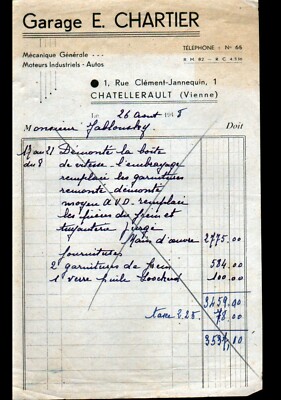 Garage E. CHARTIER
Mécanique Générale - - -
Moteurs Industriels - Autos
TÉLÉPHONE - N° 66
R. M. 82 - R. C. 4.514
1, Rue Clément-Jannequin, 1
CHATELLERAULT (Vienne)
Le 26 aout 1948
Monsieur Jablonsky Doit
17 au 21 Démonté la boite
du 8 de vitesse l'embrayage
remplacé les garnitures
remonté démonté
moyeu A.V.D. remplacé
les pièces du frein et
tuyauterie purgé
Main d'œuvre 2775.00
fournitures
2 garnitures de frein 584.00
1 verre huile Loockeed 100.00
3459.00
taxe 2.25 78.00
3537,00